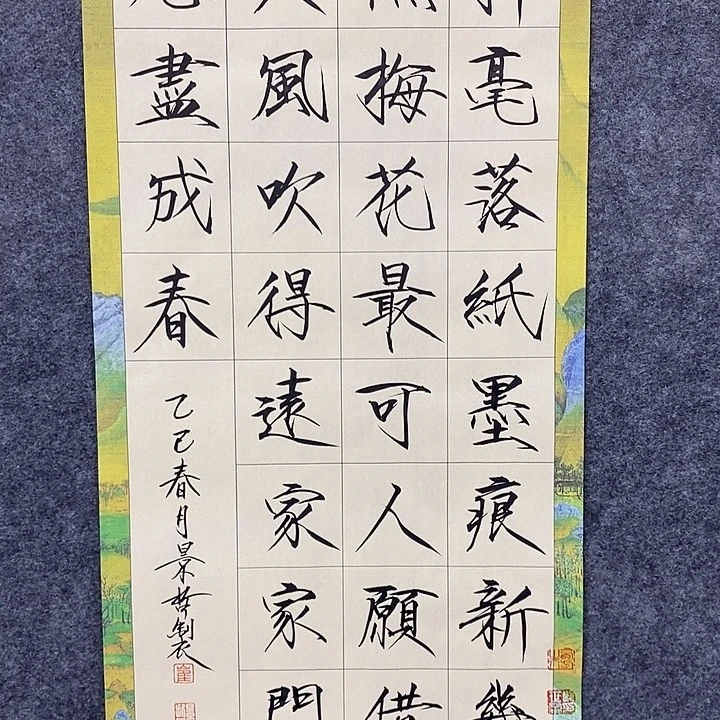 毫落紙墨痕新幾
梅花最可人願借
風吹得遠家家門
盡成春
乙巳春月景製